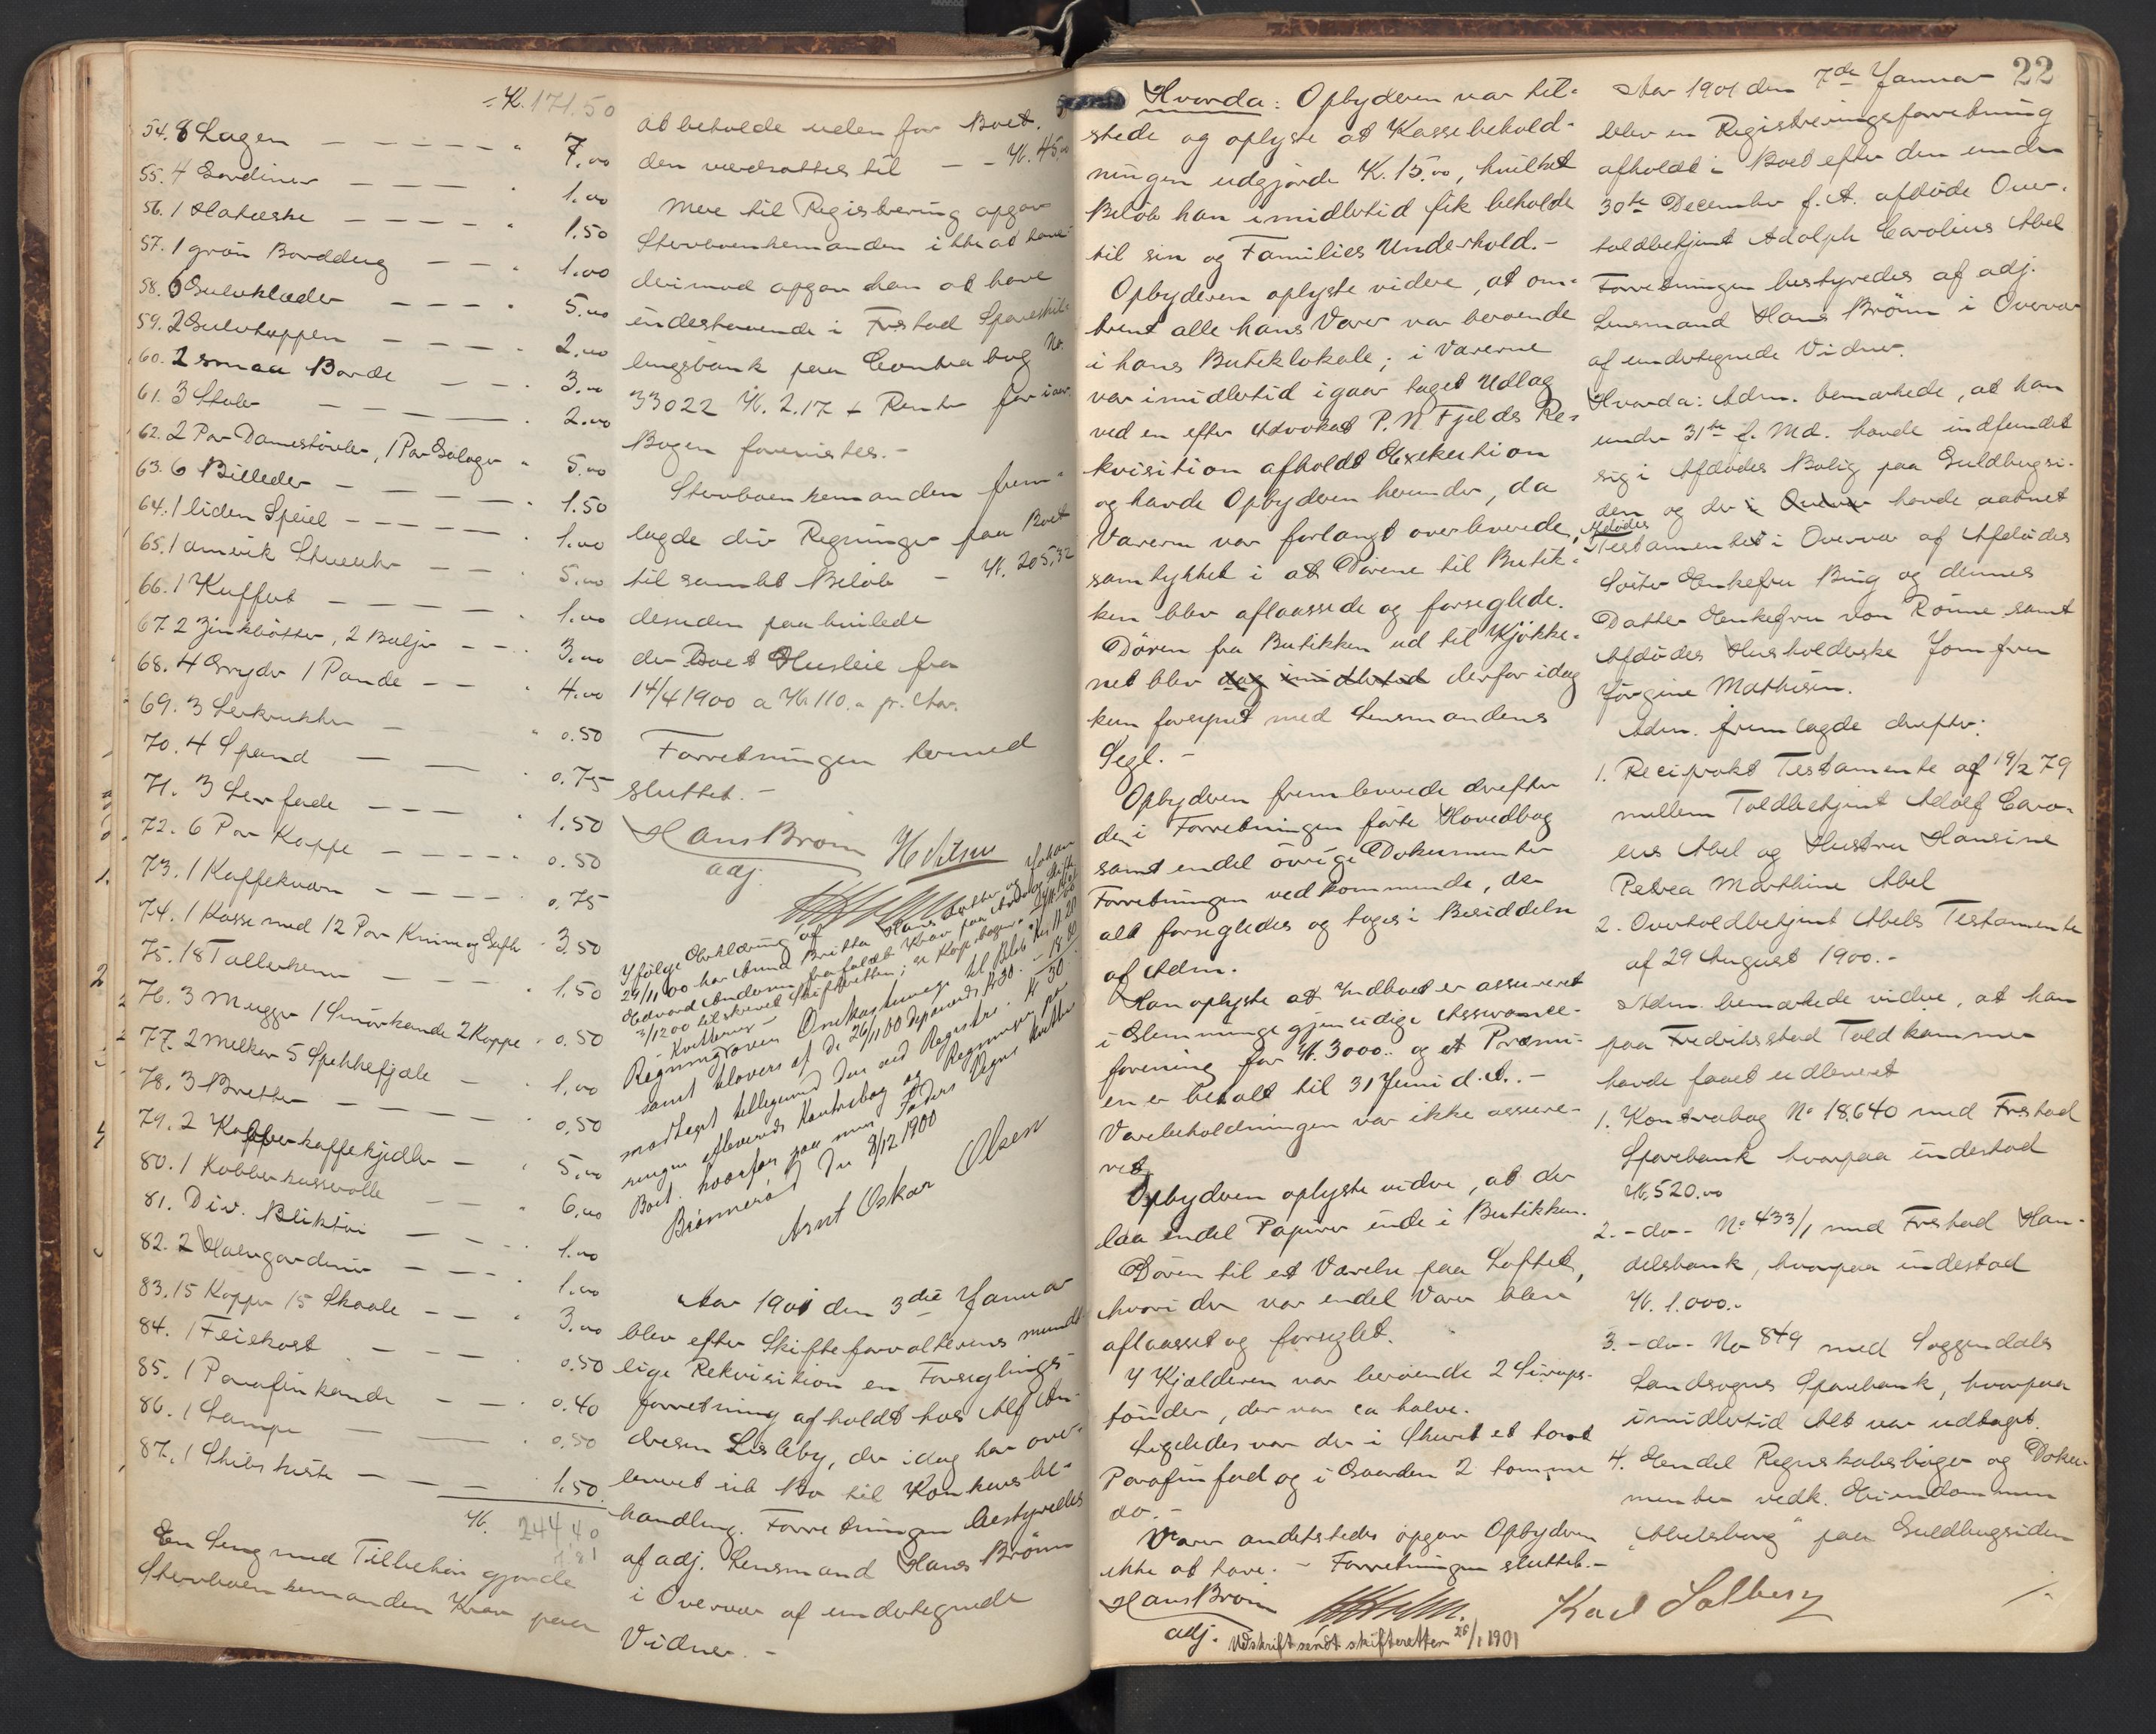 ÷ K. 171.50
54. 8 Lagen — — — — — " 7.00
55. 4 Gardiner — — — — " 1.00
56. 1 Hatæske — — — — " 1.50
57. 1 grön Borddug — — " 1.00
58. 6 Gulvklæder — — — " 5.00
59. 2 Gulvtæppen — — — " 2.00
60. 2 smaa Borde — — " 3.00
61. 3 Stole — — — " 2.00
62. 2 Par Damestövler, 1 Par Galoger " 5.00
63. 6 Billeder — — — — " 1.50
64. 1 liden Speiel — — — " 1.00
65. 1 amrik Stueuhr — — " 5.00
66. 1 Kuffert — — — — " 1.00
67. 2 Zinkbötter, 2 Baljer — — " 3.00
68. 4 Gryder 1 Pande — — " 4.00
69. 3 Lerkrukker — " 0.50
70. 4 Spand — — " 0.75
71. 3 Lerfade — — — " 1.50
72. 6 Par Koppe — — — — " 0.50
73. 1 Kaffekværn — — — — " 0.75
74. 1 Kasse med 12 Par Knive og Gafler " 3.50
75. 18 Tallerkener — — — " 1.50
76. 3 Mugger 1 Smörkande 2 Koppe " 0.50
77. 2 Melkar 5 Spekkefjæle — " 1.00
78. 3 Bretter — — — — 0.50
79. 2 Kobberkaffekjedler — " 5.00
80. 1 Kobberkasserolle — — " 6.00
81. Div. Bliktöi — — — " 1.00
82. 2 Halvgardiner — — — " 1.00
83. 15 Kopper 15 Skaale — — " 3.00
84. 1 Feiekost — — — " 0.50
85. 1 Parafinkande — — " 0.40
86. 1 Lampe — — " 0.50
87. 1 Skibskiste — — — 1.50
K. 244,40
En Seng med Tilbehör gjorde
Stervboenkemanden Krav paa
at beholde uden for Boet.
den værdsattes til — — K. 45.00
Mere til Registrering opgav
Stervboenkemanden ikke at have
derimod opgav han at have
indestaaende i Frstad Spareskil-
lingsbank paa Contrabog No.
33022 K. 2.17 + Renter for iaar.
Bogen forevistes. -
Stervboenkemanden frem-
lagde div Regninger paa Boet
til samlet Beløb — K. 205,32
desuden paahvilede
der Boet Husleie fra
14/4 1900 a K. 110.- pr. Aar.
Forretningen hermed
sluttet. -
Hans Bröm
adj.
Ifølge Erklæring af
29/11 00 har
3/12 00 tilskrevet Skifteretten; se Kopibogen.
Kvittering -
samt
26/11 00
Kontrabog og Regninger
Boet. hvorfor paa min Faders Vegne kvitteres
Brönnerö d Den 8/12 1900
Arnt Oskar Olsen
Aar 1901 den 3die Januar
blev efter Skifteforvalterens mundt-
lige Rekvisition en Forseglings-
forretning afholdt hos Alf An-
dresen Lisleby, der idag har over-
leveret sit Bo til Konkursbe-
handling. Forretningen bestyredes
af adj. Lensmand Hans Bröm
i Overvær af undertegnede
Vidner. -
Hvorda: Opbyderen var til-
stede og oplyste at Kassebehold-
ningen udgjorde K. 15.00, hvilket
Beløb han imidlertid fik beholde
til sin og Families Underhold. -
Opbyderen oplyste videre, at om-
trent alle hans Varer var beroende
i hans Butiklokale; i Varerne
var imidlertid igaar taget Udlag
ved en efter Advokat P. N. Fjelds Re-
kvisition afholdt Exekution
og havde Opbyderen herunder, da
Varerne var forlangt overleverede,
samtykket i at Dörene til Butik-
ken blev aflaasede og forseglede.
Dören fra Butikken ud til Kjøkke-
net blev dog imidlertid derfor idag
kun forsynet med Lensmandens
Segl. -
Opbyderen fremleverede derefter
de i Forretningen førte Hovedbog
samt endel övrige Dokumenter
Forretningen vedkommende, der
alt forsegledes og toges i Besiddelse
af Adm.
Han oplyste at Indboet er assureret
i Glemminge gjensidige Assurance-
forening for K. 3000.. og at Præmi-
en er betalt til 31 Juni d. A. -
Varebeholdningen var ikke assure-
ret
Opbyderen oplyste videre, at der
laa endel Papirer inde i Butikken.
Dören til et Værelse paa Loftet,
hvori der var endel Varer blev
aflaaset og forseglet.
I Kjælderen var beroende 2 Sirups-
tønder, der var ca halve.
Ligeledes var der i Skuret et tomt
Parafinfad og i Gaarden 2 tomme
do. -
Varer andetsteds opgav Opbyderen
ikke at have. - Forretningen sluttet. -
Hans Bröm
adj.
Udskrift sendt skifteretten 26/1 1901
22
Aar 1901 den 7de Januar
blev en Registreringsforretning
afholdt i Boet efter den under
30te December f. A. afdøde Over-
toldbetjent Adolph Carolius Abel
Forretningen bestyredes af adj.
Lensmand Hans Bröm i Overvær
af undertegnede Vidner.
Hvorda: Adm. bemærkede, at han
under 31te f. Md. havde indfundet
sig i Afdødes Bolig paa Guldbugsi-
den og der i Overvær havde aabnet
Afdødes
Testamentet i Overvær af Afdødes
Søster Enkefru Bing og dennes
Datter Enkefru von Rönne samt
Afdødes Husholderske Jomfru
Jörgine Mathisen.
Adm. fremlagde derefter:
1. Reciprokt Testamente af 19/2 79
mellem Toldbetjent Adolf Caro-
lius Abel og Hustru Hansine
Petrea Marthine Abel
2. Overtoldbetjent Abels Testamente
af 29 August 1900. -
Adm. bemærkede videre, at han
paa Fredriksstad Toldkammer
havde faaet udleveret
1. Kontrabog No 18.640 med Frstad
Sparebank hvorpaa indestod
K. 520.00
2. - do - No 433/1 med Frstad Han-
delsbank, hvorpaa indestod
K. 1.000..
3. - do - No 849 med Soggendals
Landsogns Sparebank, hvorpaa
imidlertid Alt var udtaget.
4. Endel Regnskabsbøger og Doku-
menter vedk. Eiendommen
"Abelsborg" paa Guldbugsiden
Karl Solberg